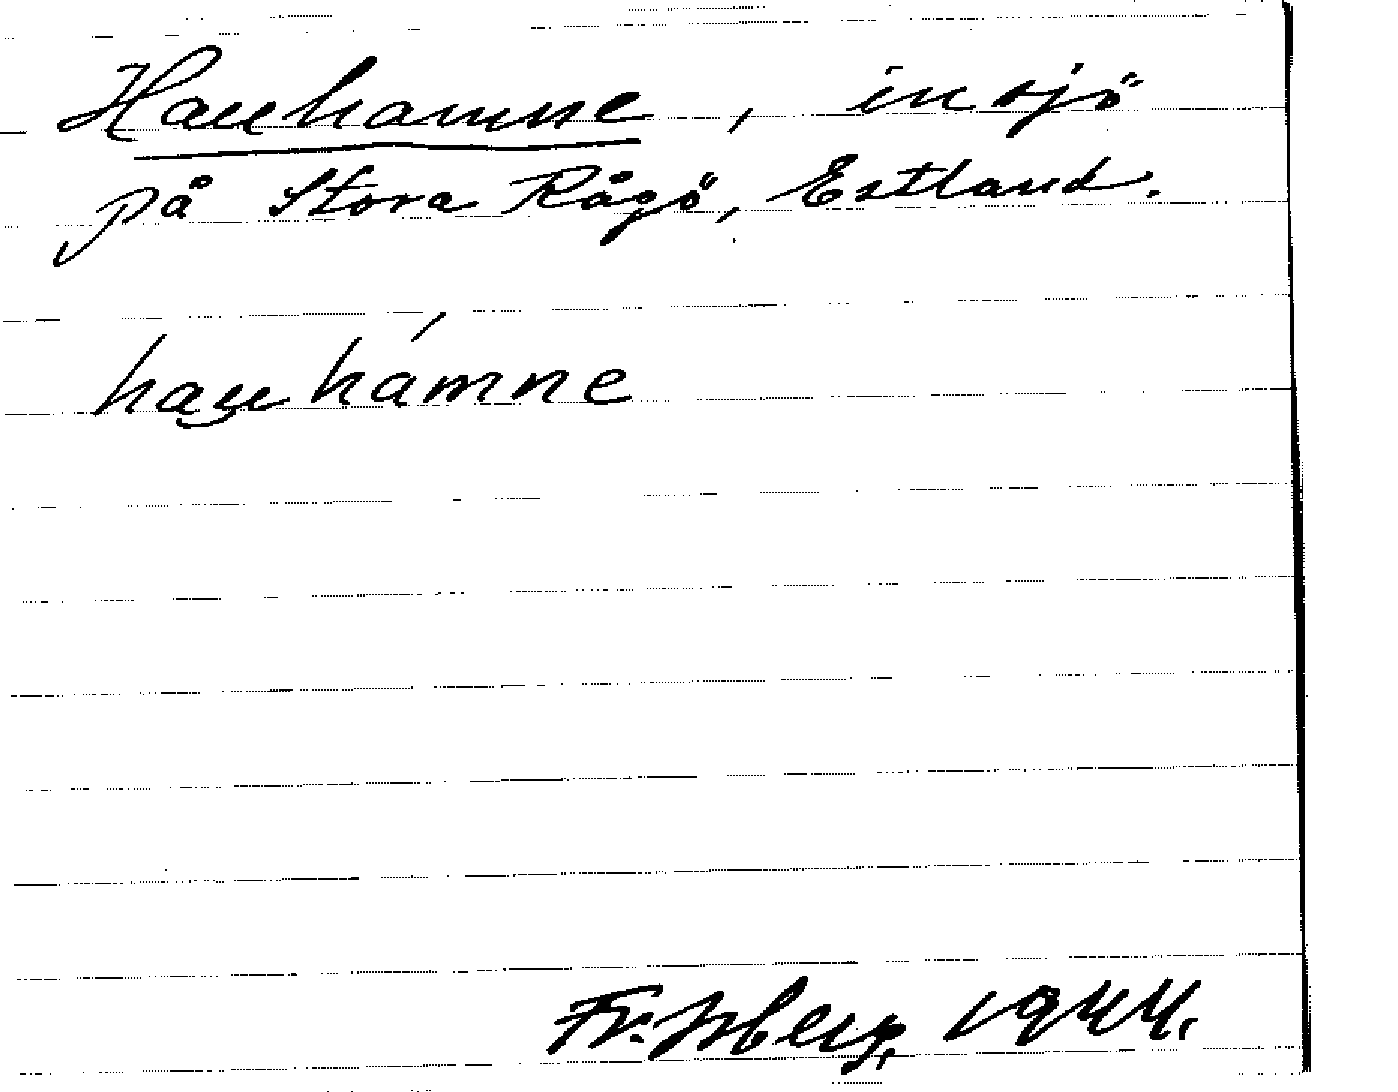 Hauhamne, insjö
på Stora Rågö, Estland.
hauhámne
Fr. Isberg, 1944.